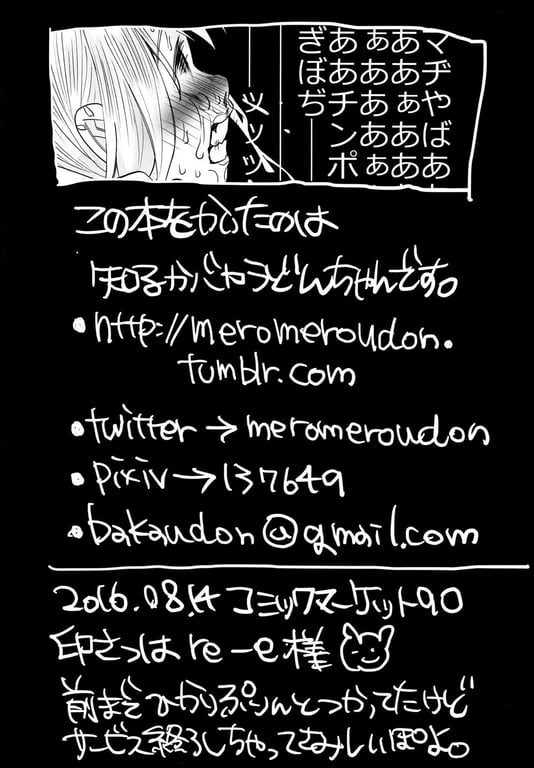 マヂやばあああ
ああぁああ
ぁああああぁ
ああチンポ
ぎぼぢ――
――ッッッ
この本をかいたのは
知るかバカうどんちゃんです。
・http://meromeroudon.
tumblr.com
・twitter→meromeroudon
・pixiv→137649
・bakaudon@gmail.com
2016.08.14 コミックマーケット90
印さつは re-e様
前までひかりぷりんとつかってたけど
サービス終ろしちゃってさみしいぽよ。